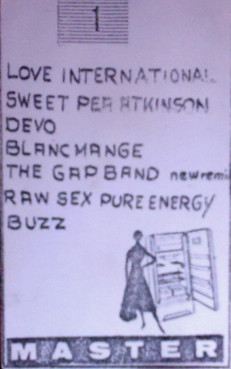 1
LOVE INTERNATIONAL
SWEET PEA ATKINSON
DEVO
BLANCMANGE
THE GAP BAND newremi
RAW SEX PURE ENERGY
BUZZ
MASTER